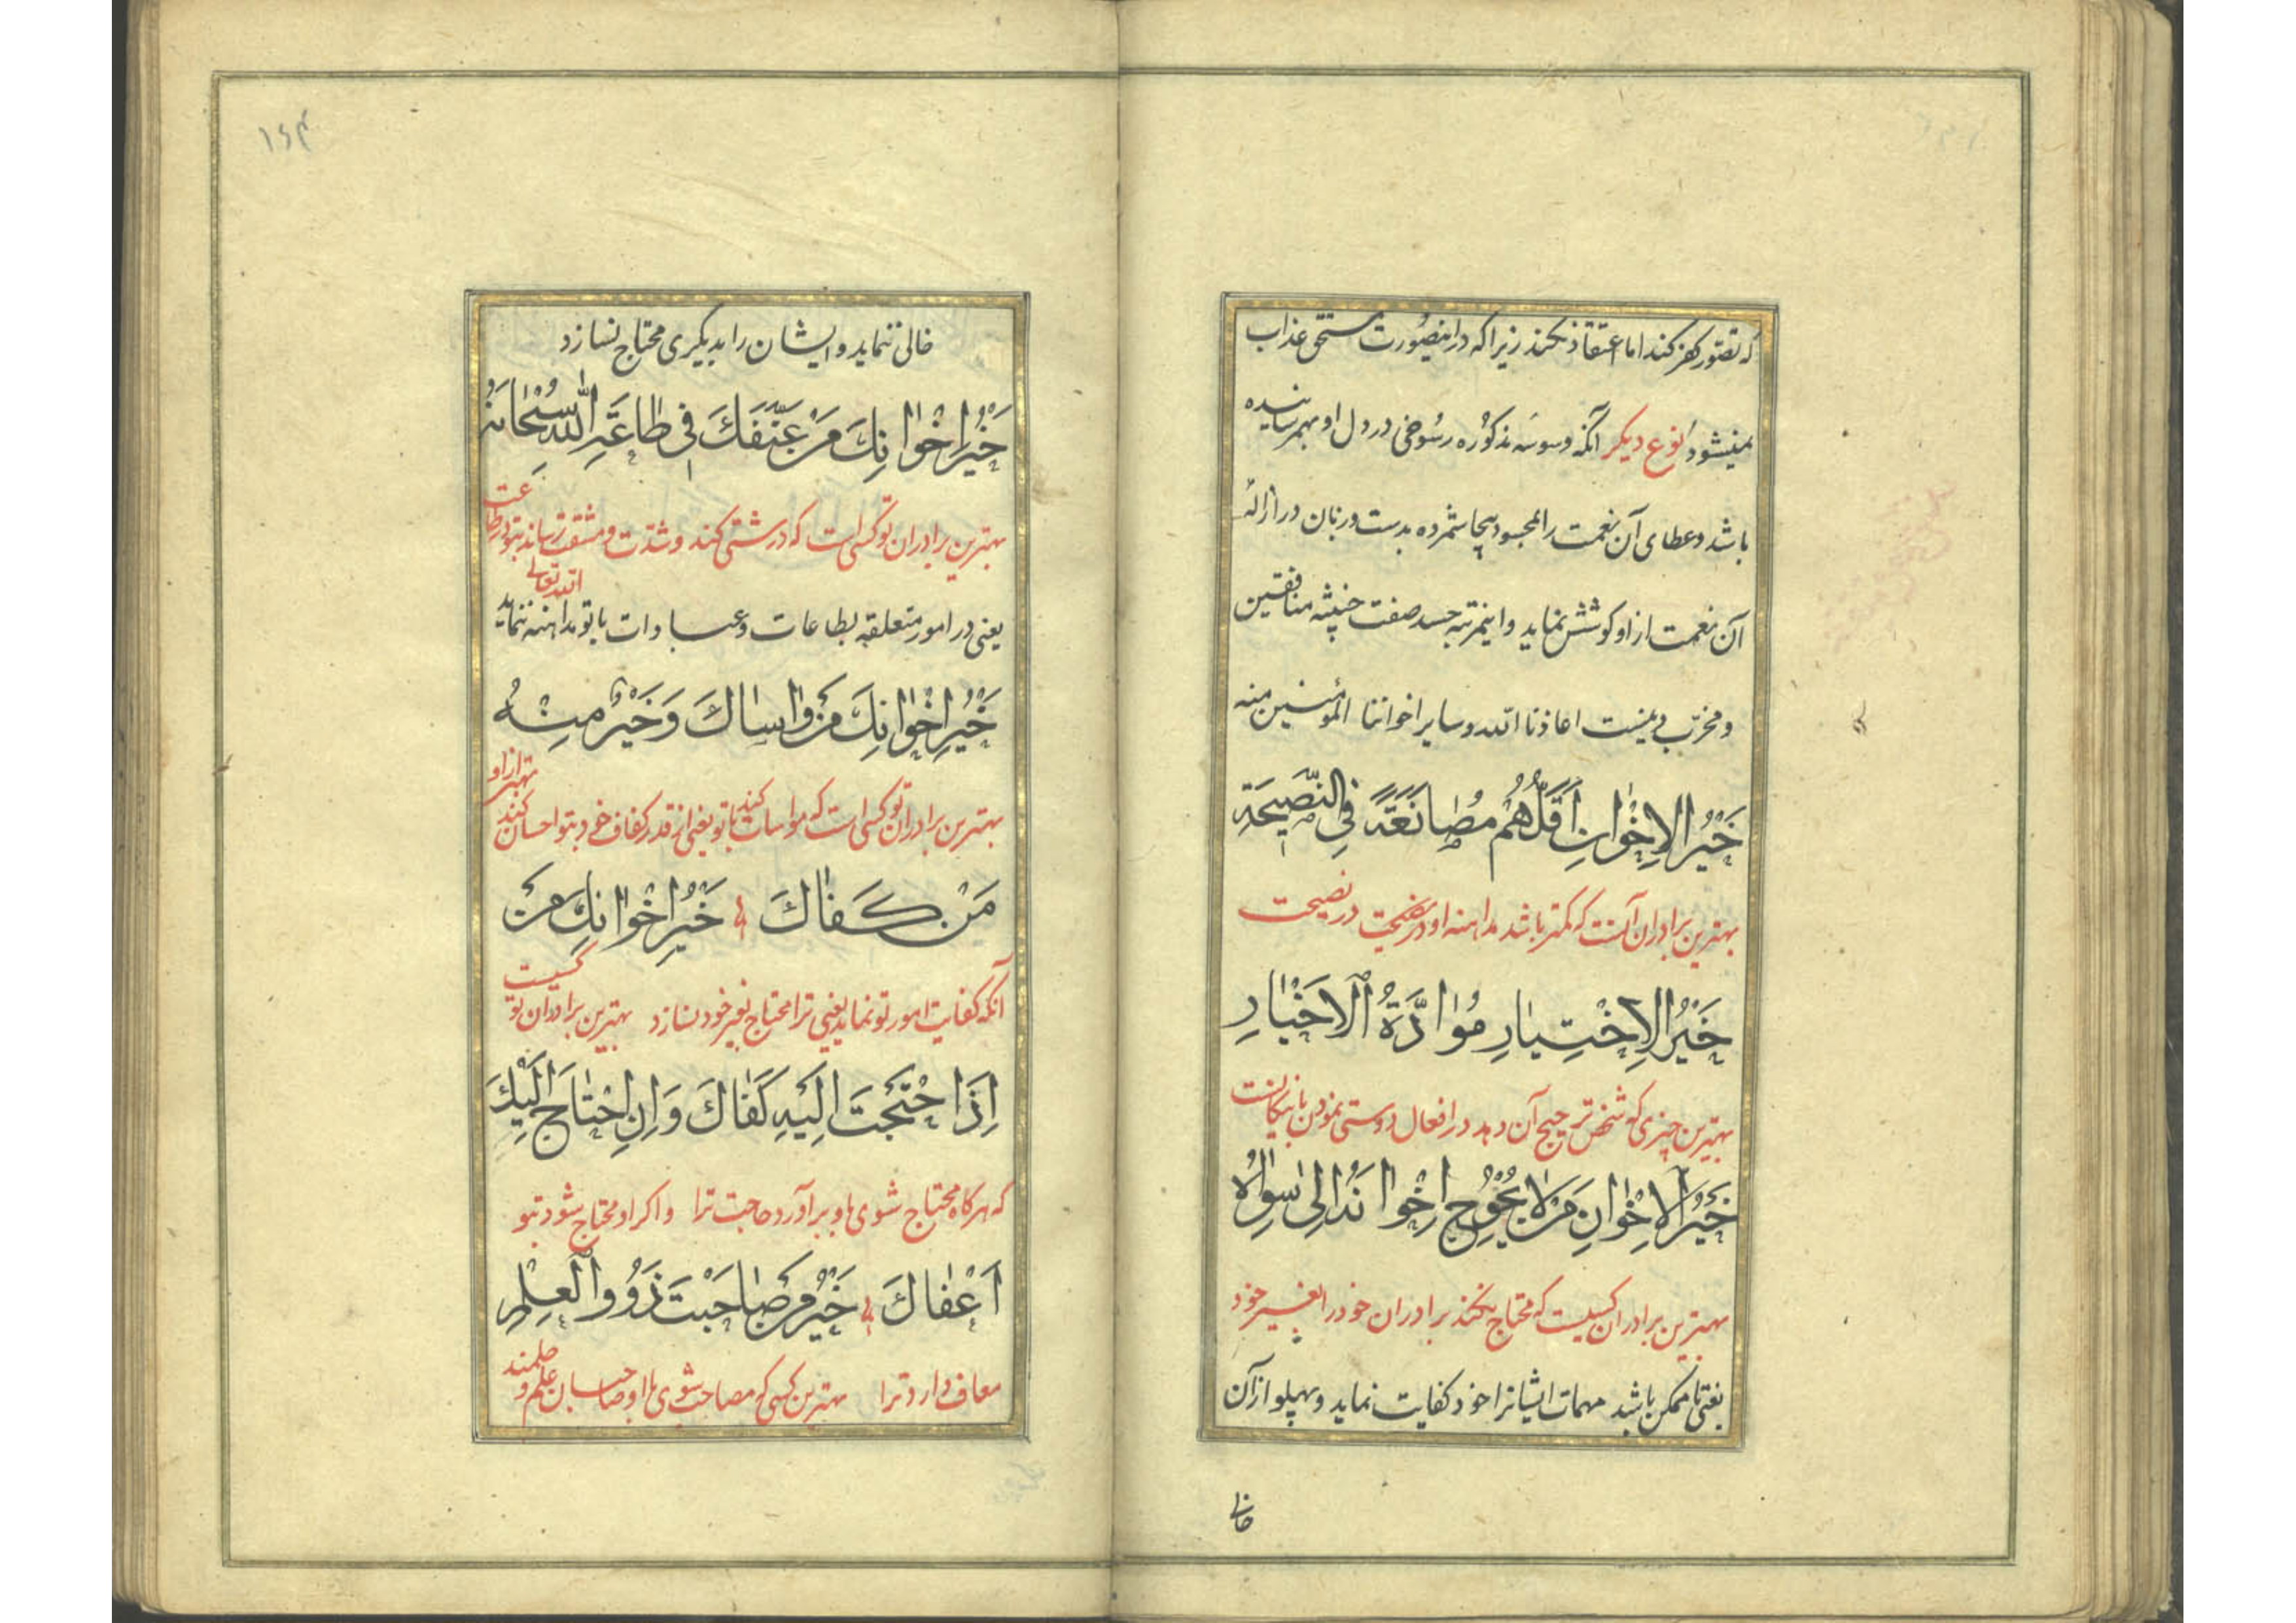 که تصور کهز کند اما اعتقاد نکند زیرا که در اینصورت مستحق عذاب
نمیشود نوع دیکر آنکه وسوسه مذکوره رسوخی در دل او بهمرسانیده
باشد و عطای آن نعمت را بمحسود بیجا شمرده بدست و زبان در ازاله
آن نعمت از او کوشش نماید و اینمرتبه حسد صفت خبیثه منافقین
و مخرب دینست اعاذنا الله و سایر اخواننا المؤمنین منه
خَیْرُ الاِخْوانِ اَقَلُّهُمْ مُصانَعَةً فِی النَّصیحَةِ
بهترین برادران آنست که کمتر باشد مداهنه او در نصیحت
خَیْرُ الاِخْتِیارِ مُوادَّةُ الاَخْیارِ
بهترین چیزی که شخص ترجیح آن دهد در افعال دوستی نمودن با نیکانست
خَیْرُ الاِخْوانِ مَنْ لا یُحْوِجُ اِخْوانَهُ اِلی سِواهُ
بهترین برادران کسیست که محتاج نکند برادران خود را بغیر خود
یعنی تا ممکن باشد مهمات ایشانرا خود کفایت نماید و پهلو از آن
خالی
۱۶۴
خالی ننماید و ایشان را بدیکری محتاج نسازد
خَیْرُ اِخْوانِکَ مَنْ عَنَّفَکَ فی طاعَةِ اللهِ سُبْحانَهُ
بهترین برادران تو کسی است که درشتی کند و شدت و مشقت رساند بتو در طاعت
الله تعالی
یعنی در امور متعلقه بطاعات و عبادات با تو مداهنه ننماید
خَیْرُ اِخْوانِکَ مَنْ واساکَ وَ خَیْرٌ مِنْهُ
بهترین برادران تو کسی است که مواسات کند با تو یعنی از قدر کفاف خود بتو احسان کند بهتر از او
مَنْ کَفاکَ خَیْرُ اِخْوانِکَ مَنْ
آنکه کفایت امور تو نماید یعنی ترا محتاج بغیر خود نسازد بهترین برادران تو کسیست
اِذَا احْتَجْتَ اِلَیْهِ کَفاکَ وَ اِنِ احْتاجَ اِلَیْکَ
که هرکاه محتاج شوی باو برآورد حاجت ترا و اکر او محتاج شود بتو
اَعْفاکَ خَیْرُ مَنْ صاحَبْتَ ذَوُو الْعِلْمِ
معاف دارد ترا بهترین کسی که مصاحب شوی با او صاحبان علم و حلمند